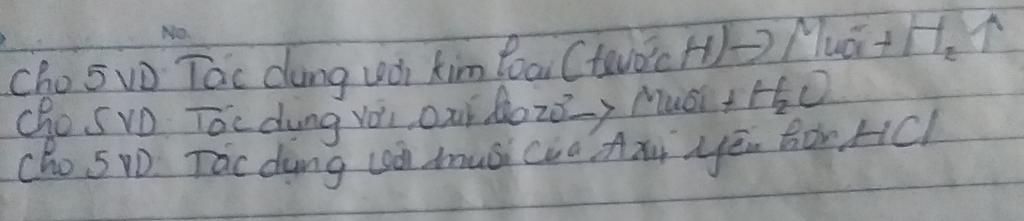 No.
Cho 5 VD Tác dụng với kim loại (trước H) → Muối + H₂ ↑
Cho 5 VD Tác dụng với oxi bazơ → Muối + H₂O
Cho 5 VD Tác dụng với muối của Axit yếu hơn HCl